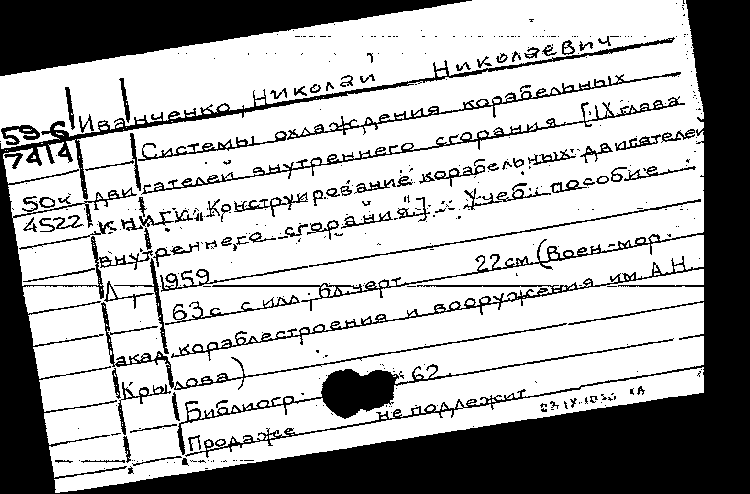 Иванченко, Николай Николаевич
59-6
7414
Системы охлаждения корабельных
двигателей внутреннего сгорания [IX глава
50к
4522
книги „Конструирование корабельных двигателей
внутреннего сгорания"]. Учеб. пособие.
Л., 1959.
63 с. с илл.; бл. черт. 22 см (Воен-мор.
акад. кораблестроения и вооружения им. А.Н.
Крылова)
Библиогр. 62.
Продаже не подлежит